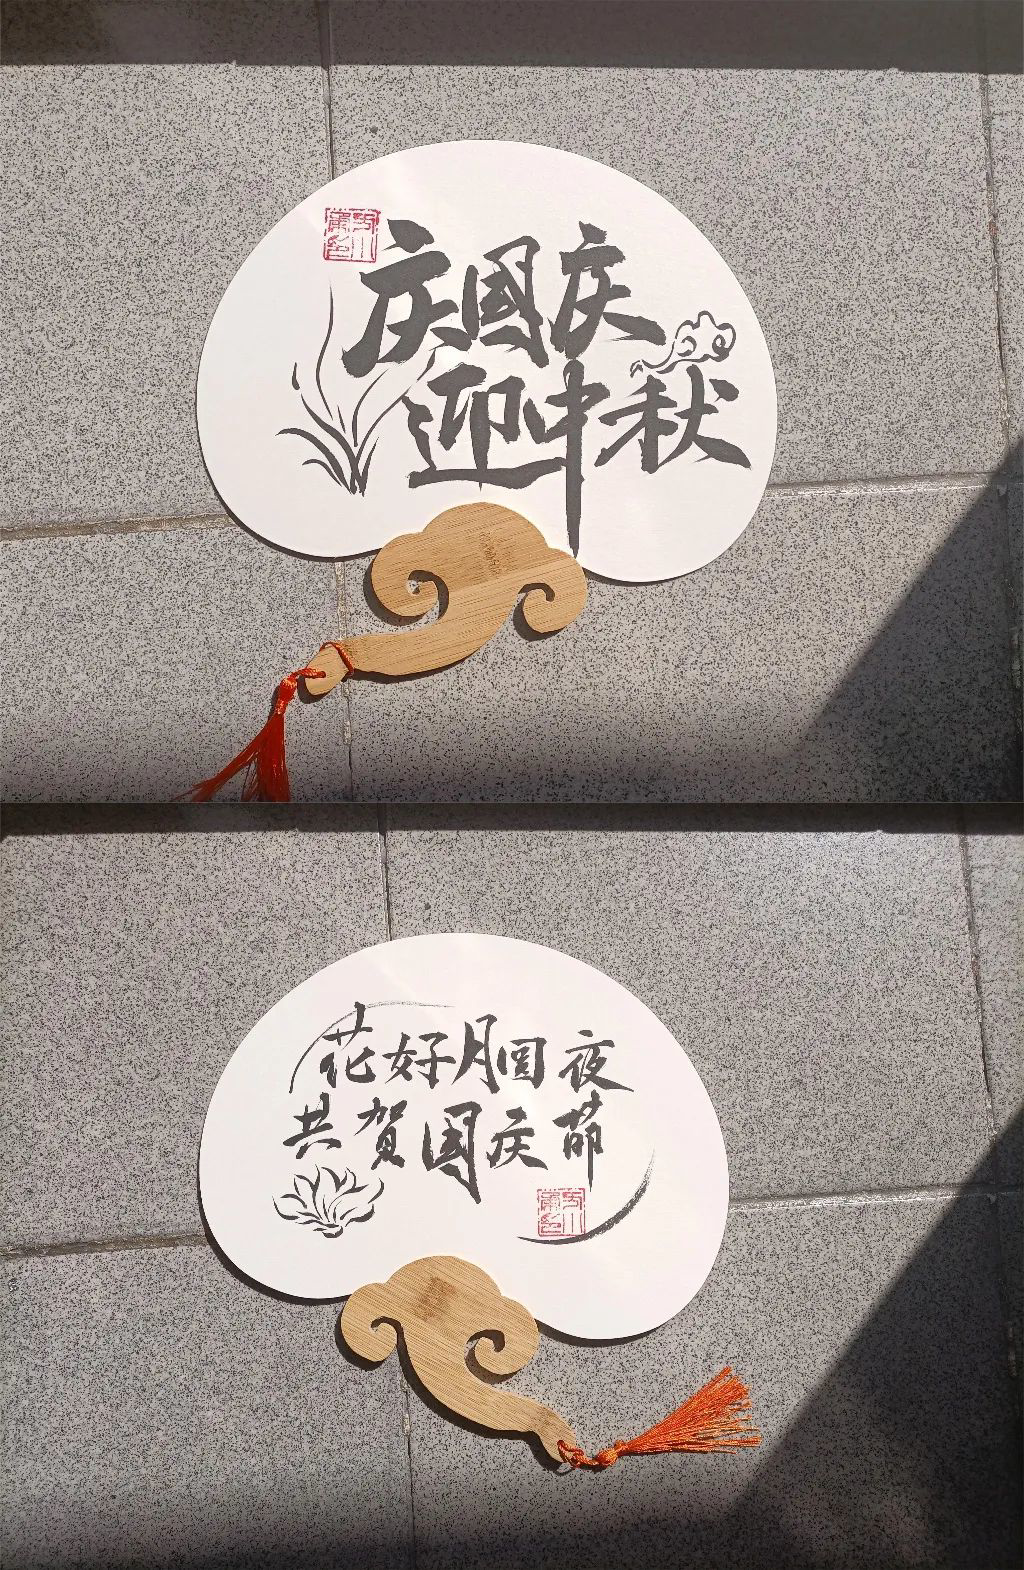 庆國庆
迎中秋
花好月圆夜
共賀国庆節